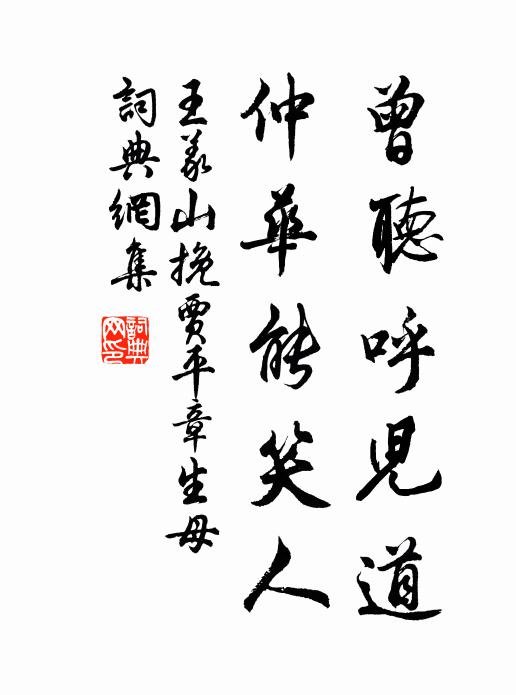 曾聽呼兒道
仲華能笑人
王義山挽賈平章生母
詞典網集
詞典網印